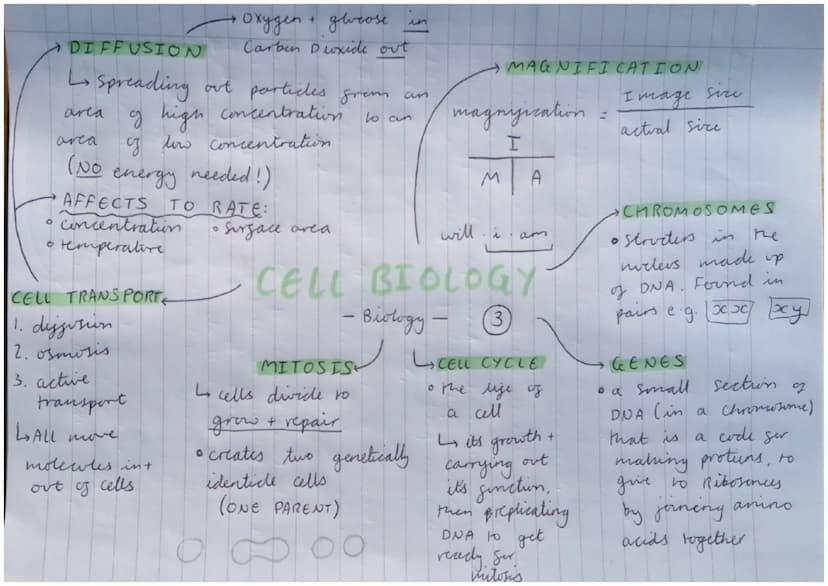 Oxygen + glucose in
Carbon Dioxide out
DIFFUSION
↳ Spreading out particles from an
area of high concentration to an
area of low concentration
(NO energy needed!)
AFFECTS TO RATE:
• concentration • surface area
• temperature
MAGNIFICATION
magnification = Image size
actual size
I
M A
will . i . am
CHROMOSOMES
• structers in the
nucleus made up
of DNA. Found in
pairs e.g. xx xy
CELL BIOLOGY
- Biology - 3
CELL TRANSPORT
1. diffusion
2. osmosis
3. active
transport
↳ All move
molecules in +
out of cells
MITOSIS
↳ cells divide to
grow + repair
• creates two genetically
identicle cells
(ONE PARENT)
CELL CYCLE
• the life of
a cell
↳ its growth +
carrying out
it's function,
then replicating
DNA to get
ready for
mitosis
GENES
• a small section of
DNA (in a chromosome)
that is a code for
making proteins, to
give to Ribosomes
by joineing amino
acids together